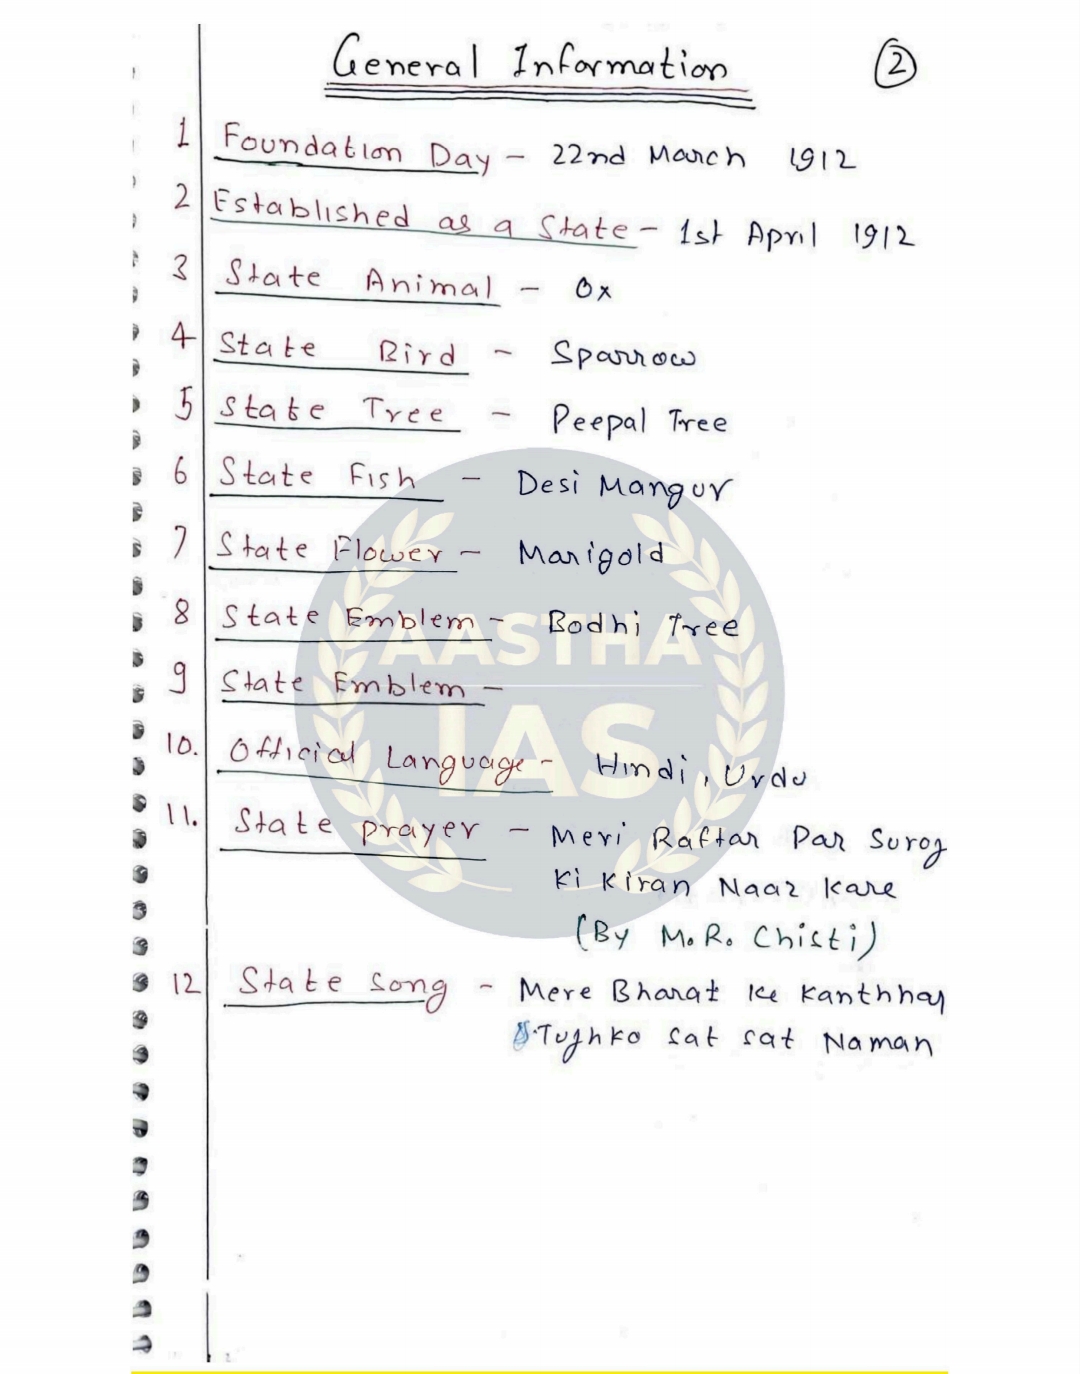 General Information
2
1 Foundation Day - 22nd March 1912
2 Established as a State - 1st April 1912
3 State Animal - Ox
4 State Bird - Sparrow
5 State Tree - Peepal Tree
6 State Fish - Desi Mangur
7 State Flower - Marigold
8 State Emblem - Bodhi Tree
9 State Emblem -
10. Official Language - Hindi, Urdu
11. State prayer - Meri Raftar Par Suroj
Ki Kiran Naaz Kare
(By M.R. Chisti)
12 State Song - Mere Bharat ke Kanthhaj
Tujhko Sat sat Naman
AASTHA
IAS